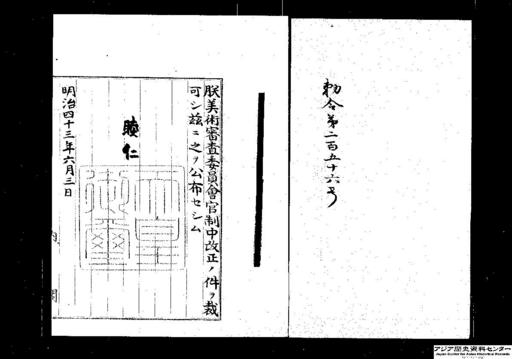 勅令第二百五十六号
朕美術審査委員會官制中改正ノ件ヲ裁
可シ玆ニ之ヲ公布セシム
睦仁
天皇
御璽
明治四十三年六月三日
内閣
アジア歴史資料センター
Japan Center for Asian Historical Records